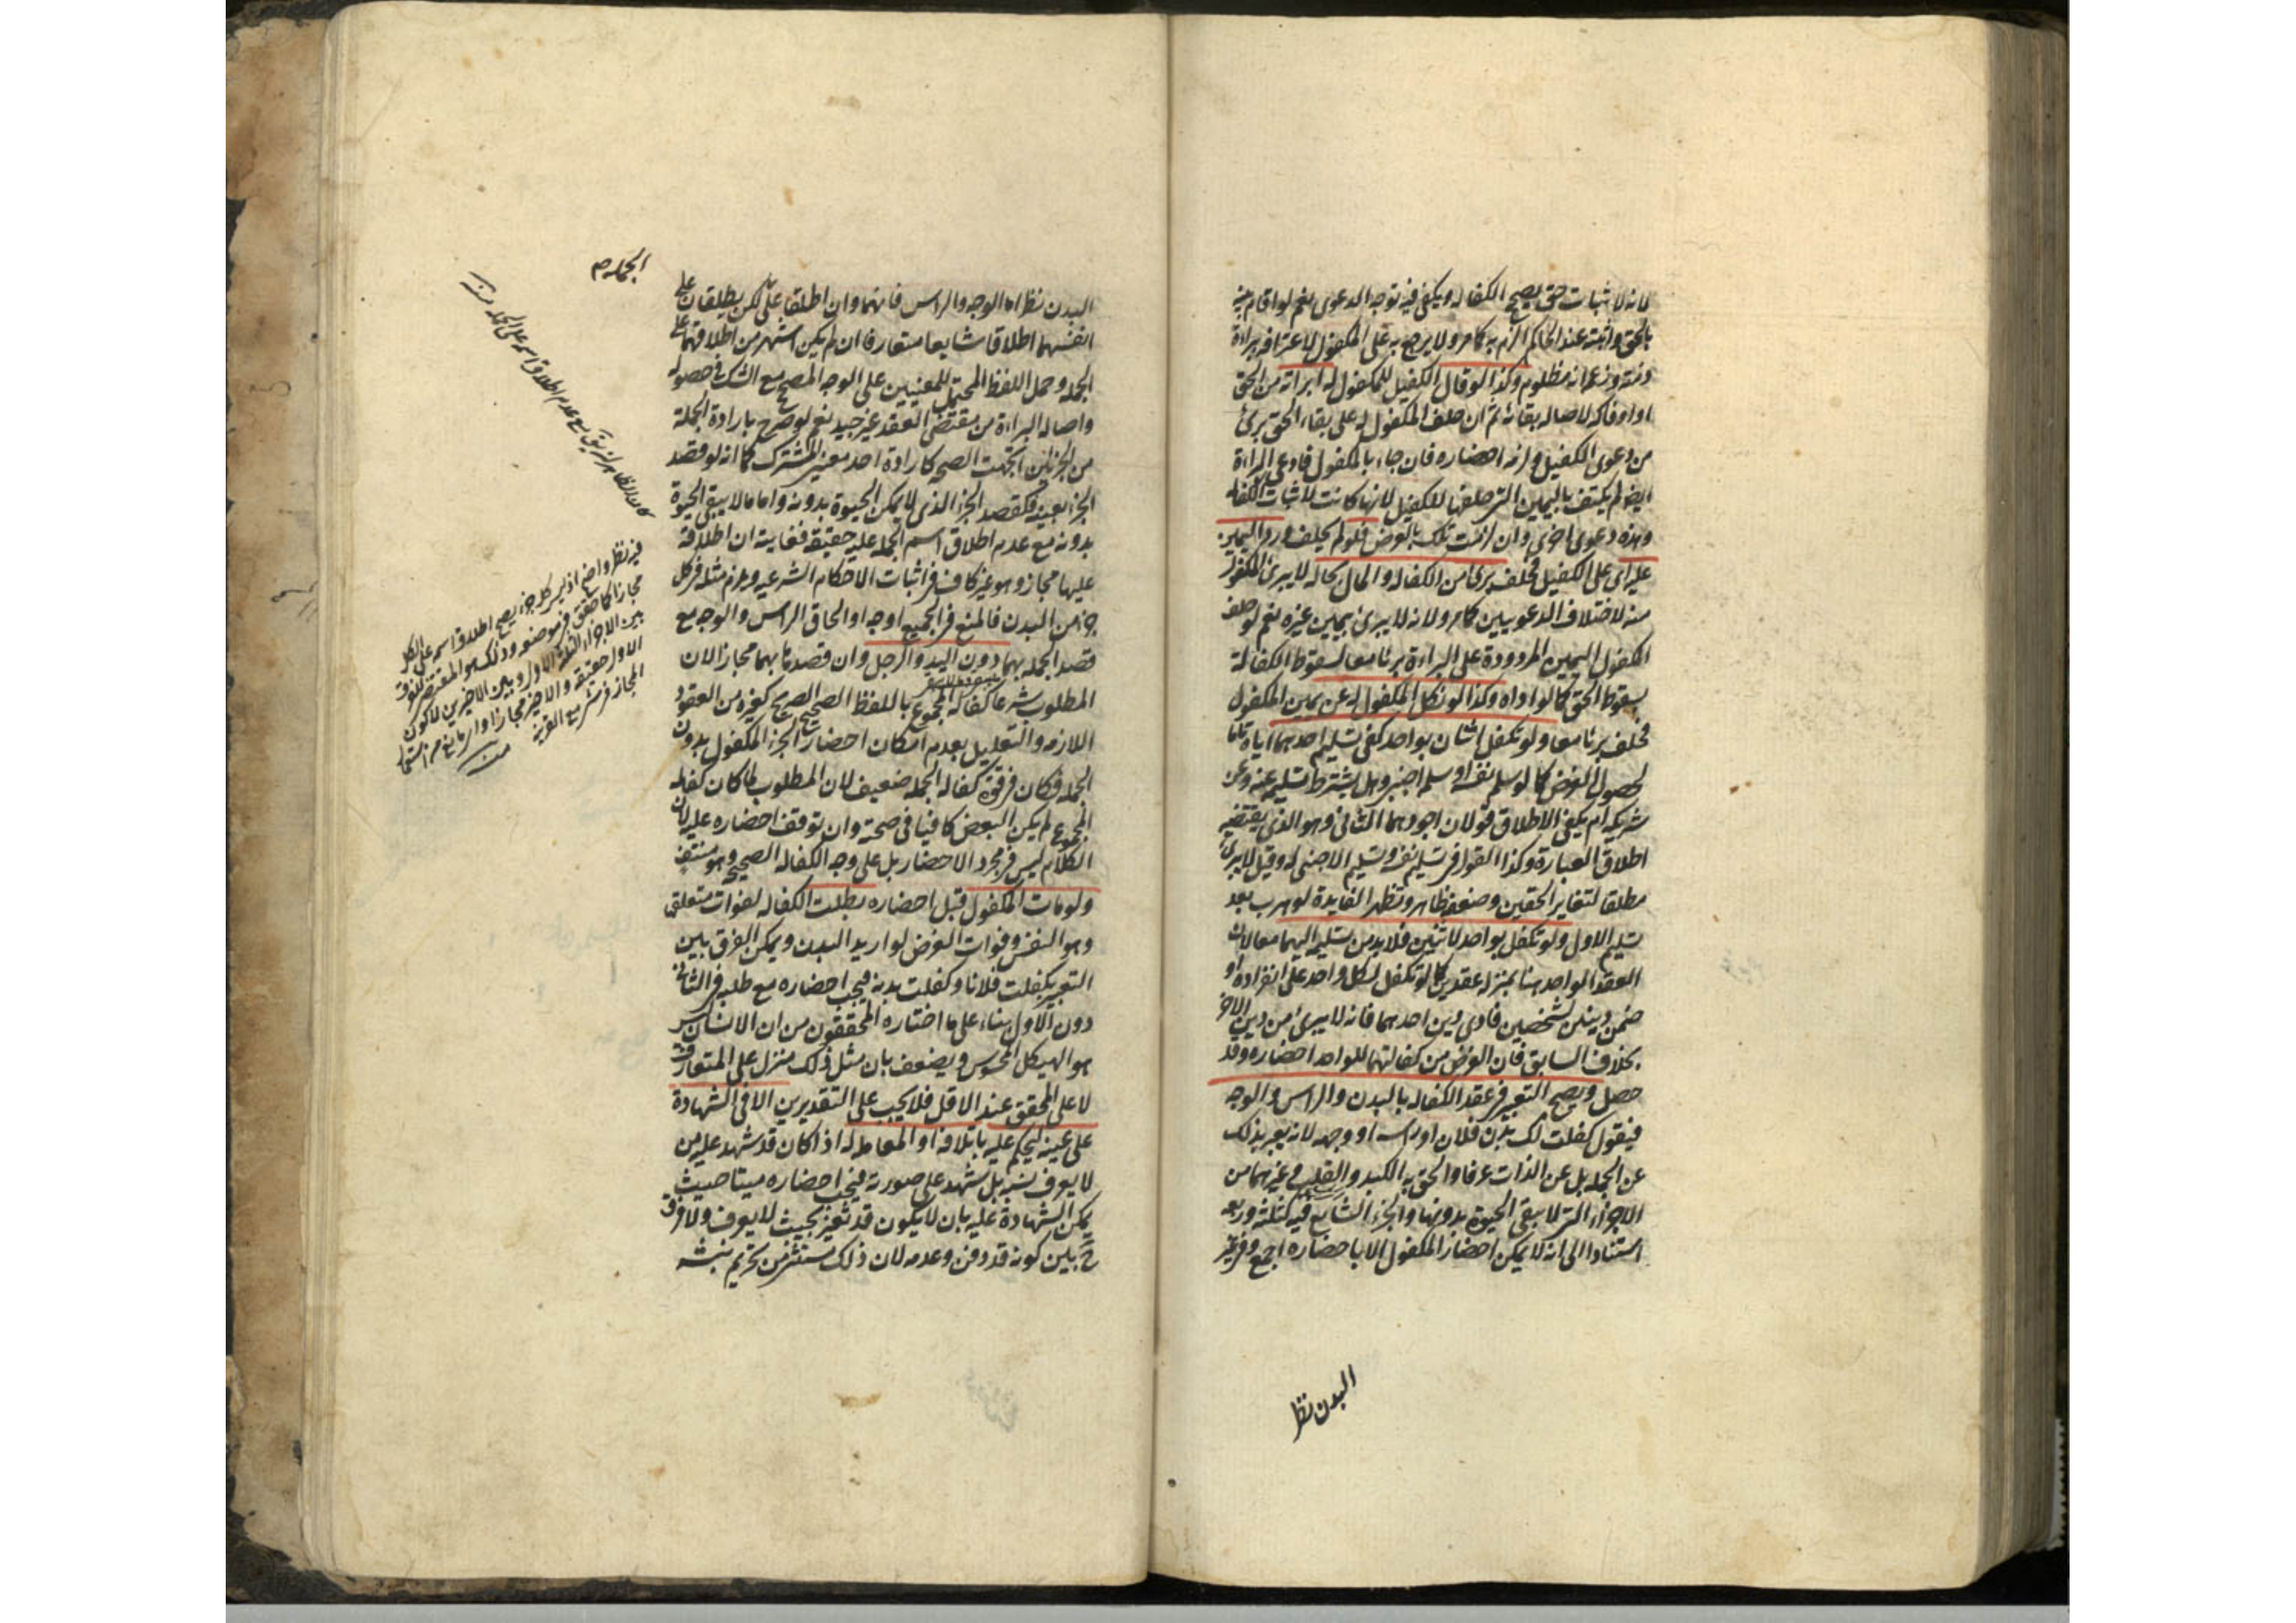 لانه لاثبات حق يصح الكفالة ويكفي فيه توجه الدعوى نعم لو اقام بينة
بالحق واثبته عند الحاكم الزم به كما مر ولا يرجع به على المكفول لاعترافه ببراءة
ذمته وزعمه انه مظلوم وكذا لو قال الكفيل للمكفول له ابراته من الحق
او اوفاكه لاصالة بقائه ثم ان حلف المكفول له على بقاء الحق برئ
من دعوى الكفيل ولزمه احضاره فان جاء بالمكفول فادعى البراءة
ايضا لم يكتف باليمين التي حلفها للكفيل لانها كانت لاثبات الكفالة
وهذه دعوى اخرى وان لزمت تلك بالعرض فلو لم يحلف ورد اليمين
عليه اى على الكفيل فحلف برئ من الكفالة والمال بحاله لا يبرئ المكفول
منه لاختلاف الدعويين كما مر ولانه لا يبرئ بيمين غيره نعم لو حلف
المكفول اليمين المردودة على البراءة برئا معا لسقوط الكفالة
بسقوط الحق كما لو اداه وكذا لو نكل المكفول له عن يمين المكفول
فحلف برئا معا ولو تكفل اثنان بواحد كفى تسليم احدهما اياه تاما
لحصول الغرض كما لو سلم نفسه او سلمه اجنبي وهل يشترط تسليمه عنه وعن
شريكه ام يكفي الاطلاق قولان اجودهما الثاني وهو الذي يقتضيه
اطلاق العبارة وكذا القول في تسليم نفسه وتسليم الاجنبي له وقيل لا يبرئ
مطلقا لتغاير الحقين وضعفه ظاهر وتظهر الفايدة لو هرب بعد
تسليم الاول ولو تكفل بواحد لاثنين فلا بد من تسليمه اليهما معا لان
العقد الواحد هنا بمنزلة عقدين كما لو تكفل لكل واحد على انفراده او
ضمن دينين لشخصين فادى دين احدهما فانه لا يبرئ من دين الاخر
بخلاف السابق فان الغرض من كفالتهما للواحد احضاره وقد
حصل ويصح التعبير في عقد الكفالة بالبدن والراس والوجه
فيقول كفلت لك بدن فلان او راسه او وجهه لانه يعبر بذلك
عن الجملة بل عن الذات عرفا والحق به الكبد والقلب وغيرهما من
الاجزاء التي لا تبقى الحيوة بدونها والجزء الشايع فيه كثلثه وربعه
استنادا الى انه لا يمكن احضار المكفول الا باحضاره اجمع وفي غير
البدن نظر
البدن نظر اما الوجه والراس فانهما وان اطلقا على لكن يطلقان على
الجملة م
انفسهما اطلاقا شايعا متعارفا ان لم يكن اشهر من اطلاقهما على
الجملة وحمل اللفظ المحتمل للمعنيين على الوجه المصحح مع الشك في حصوله
واصالة البراءة من مقتضى العقد غير جيد نعم لو صرح بارادة الجملة
من الجزئين اتجهت الصحة كارادة احد معنيي المشترك كما انه لو قصد
الجزء بعينه فكقصد الجزء الذي لا يمكن الحيوة بدونه واما ما لا يبقى الحيوة
بدونه مع عدم اطلاق اسم الجملة عليه حقيقة فغايته ان اطلاقه
عليها مجاز وهو غير كاف في اثبات الاحكام الشرعية ويلزم مثله في كل
جزء من البدن فالمنع في الجميع اوجه او الحاق الراس والوجه مع
قصد الجملة بهما دون اليد والرجل وان قصدها بهما مجازا لان
المطلوب شرعا كفالة المجموع باللفظ الصحيح الصريح كغيره من العقود
اللازمة والتعليل بعدم امكان احضار الجزء المكفول بدون
الجملة فكان في قوة كفالة الجملة ضعيف لان المطلوب لما كان كفالة
المجموع لم يكن البعض كافيا في صحته وان توقف احضاره عليه لان
الكلام ليس في مجرد الاحضار بل على وجه الكفالة الصحيحة وهو منتف
ولو مات المكفول قبل احضاره بطلت الكفالة لفوات متعلقها
وهو النفس وفوات الغرض لو اريد البدن ويمكن الفرق بين
التعبير بكفلت فلانا وكفلت بدنه فيجب احضاره مع طلبه في الثاني
دون الاول بناء على ما اختاره المحققون من ان الانسان ليس
هو الهيكل المحسوس ويضعف بان مثل ذلك منزل على المتعارف
لا على المحقق عند الاقل فلا يجب على التقديرين الا في الشهادة
على عينه ليحكم عليه باتلافه او المعاملة له اذا كان قد شهد عليه من
لا يعرف نسبه بل شهد على صورته فيجب احضاره ميتا حيث
يمكن الشهادة عليه بان لا يكون قد تغير بحيث لا يعرف ولا فرق
ح بين كونه قد دفن وعدمه لان ذلك مستثنى من تحريم نبشه
فيه نظر واضح اذ ليس كل جزء يصح اطلاق اسمه على الكل
مجازا كما حقق في موضعه وذلك هو المقتضى للفرق
بين الاجزاء الثلثة الاول وبين الاخيرين لا كون
الاول حقيقة والاخير مجازا